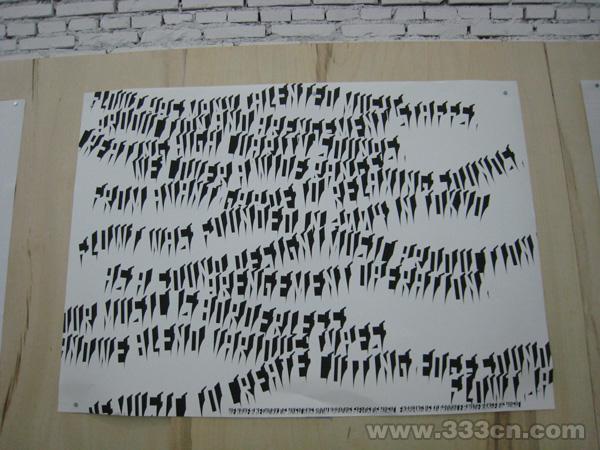 FLOWT HAS MANY TALENTED MUSIC STAFFS,
PRODUCTION AND ARENGEMENT,
CREATING HIGH QUARITY SOUNDS.
WE COVER A WIDE RANGES,
FROM AVANT-GARDE TO RELAXING SOUNDS.
FLOWT WAS FOUNDED IN IN TOKYO
AS A SOUND DESIGN / MUSIC PRODUCTION
ARENGEMENT OPERATION.
OUR MUSIC IS BORDERLESS
AND WE BLEND VARIOUS TYPES
OF MUSIC TO CREATE CUTTING EDGE SOUND.
FLOWT.JP
www.333cn.com